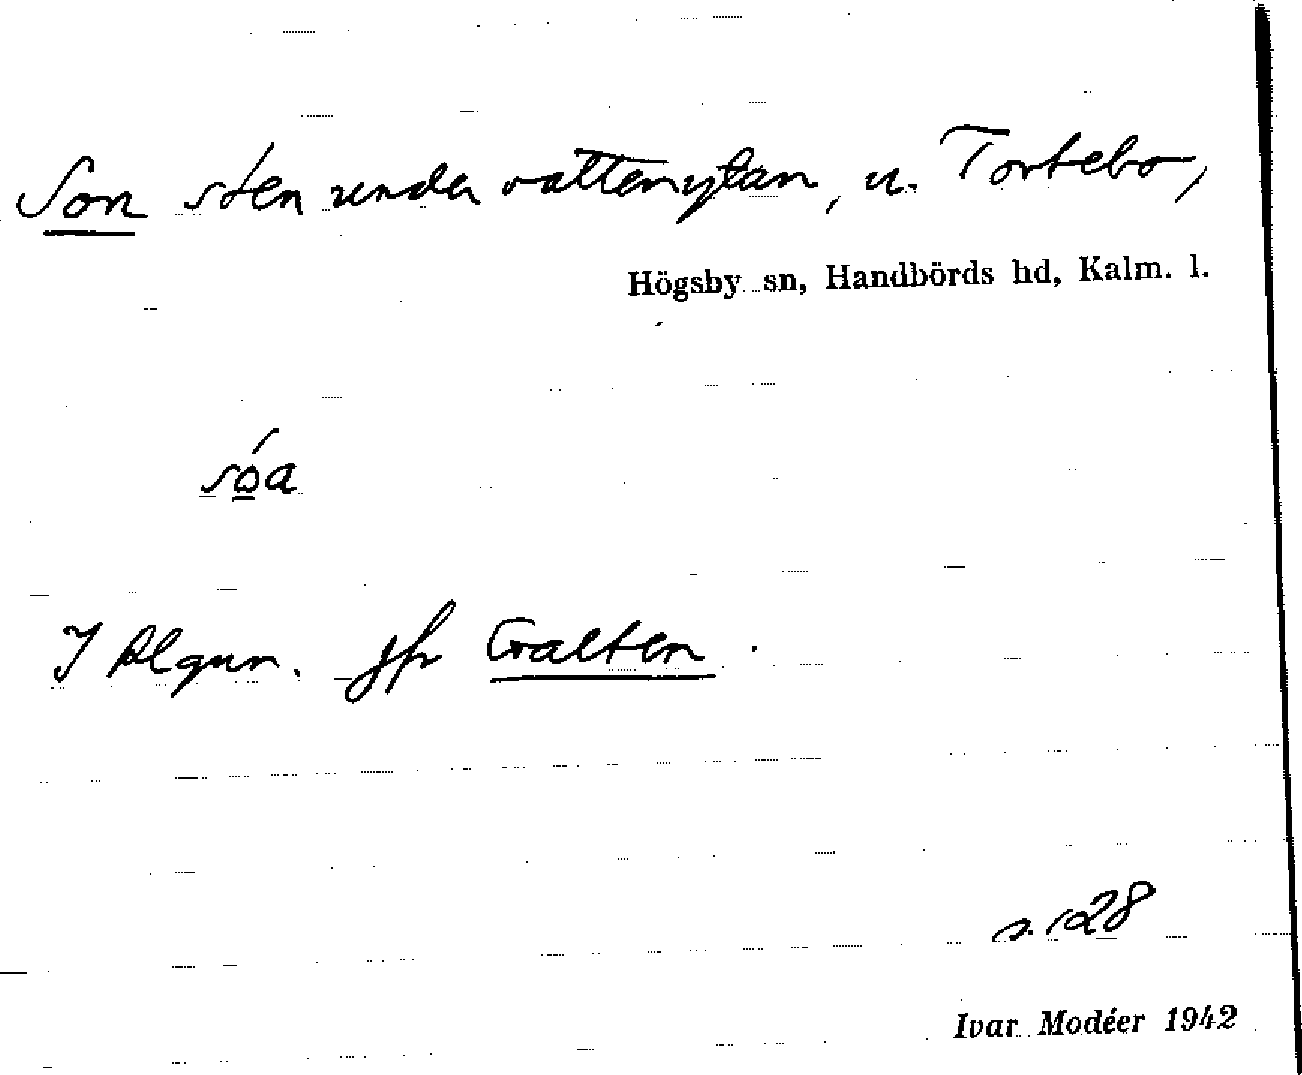 Son sten under vattenytan, u. Tortebo,
Högsby sn, Handbörds hd, Kalm. l.
sóa
I Algun. jfr Galten.
s. 128
Ivar Modéer 1942